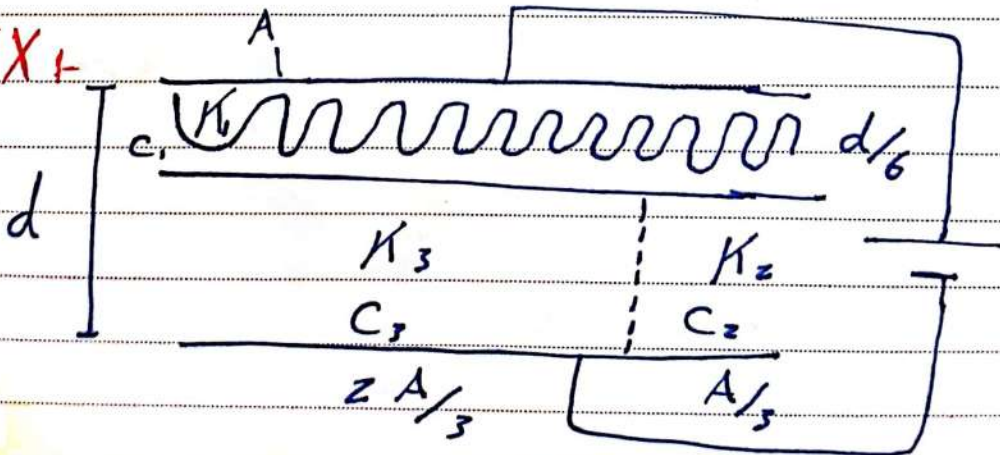 X+
A
K₁
C₁
d/6
d
K₃
K₂
C₃
C₂
2 A/3
A/3